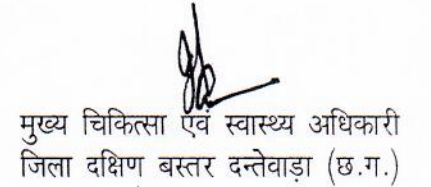 मुख्य चिकित्सा एवं स्वास्थ्य अधिकारी
जिला दक्षिण बस्तर दन्तेवाड़ा (छ.ग.)